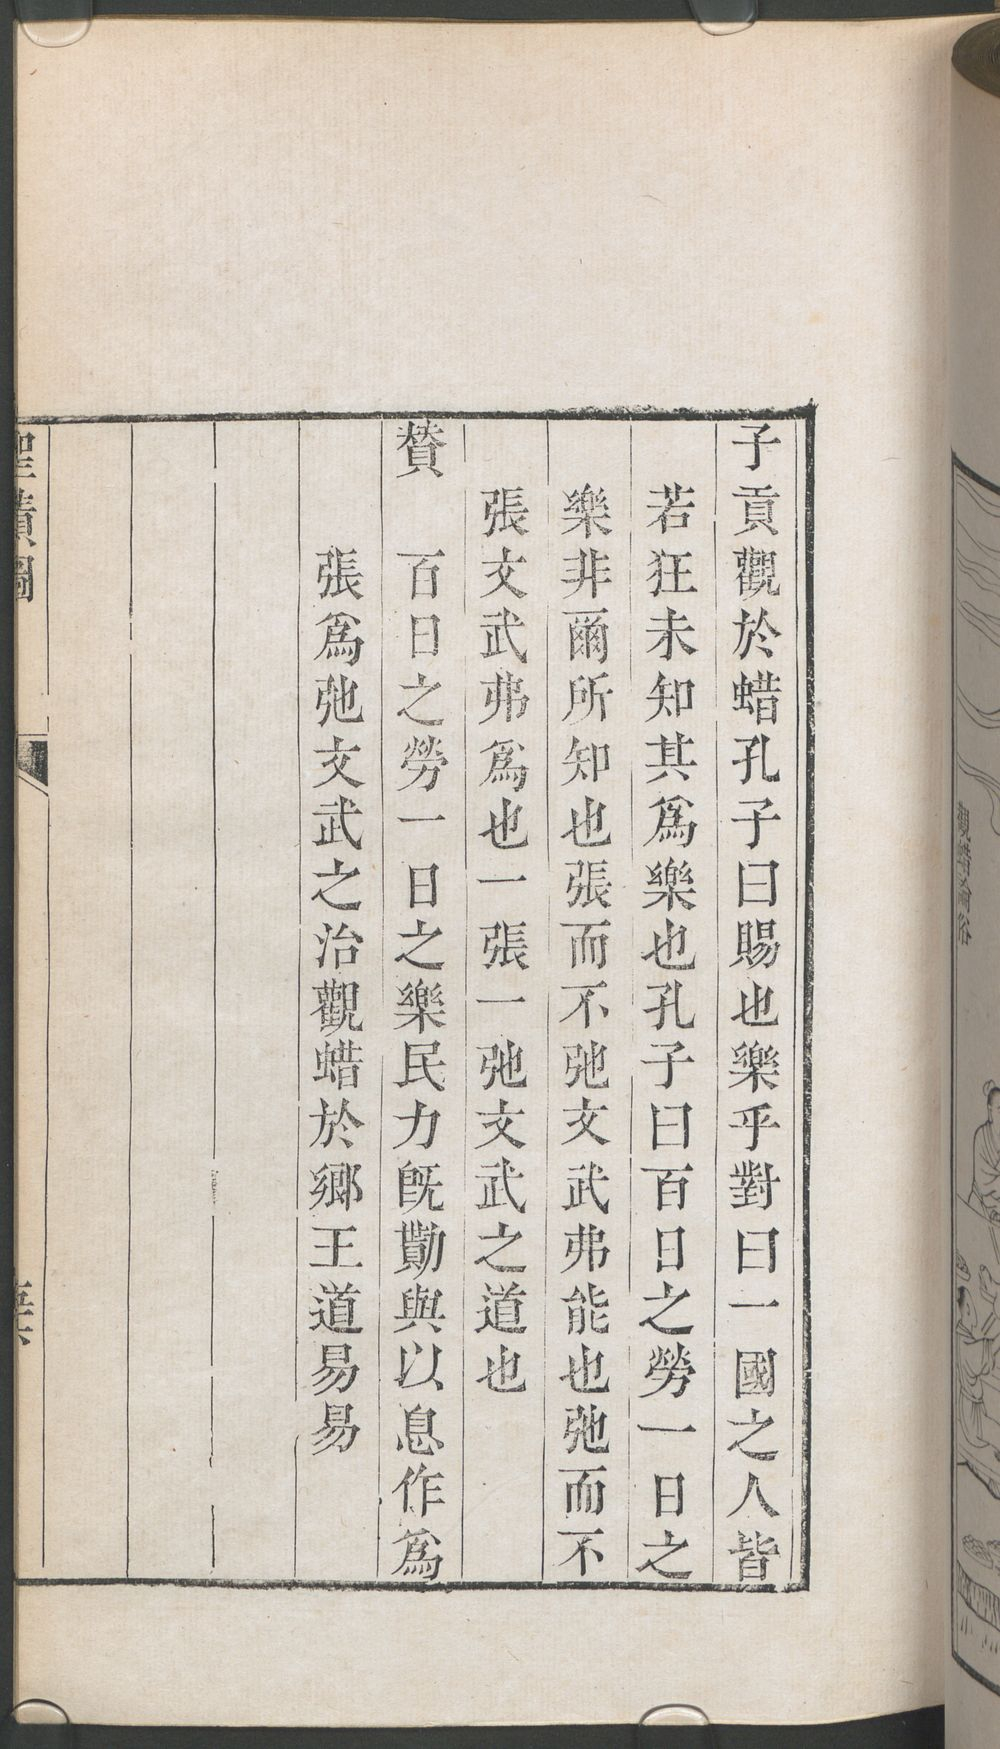 子貢觀於蜡孔子曰賜也樂乎對曰一國之人皆
若狂未知其爲樂也孔子曰百日之勞一日之
樂非爾所知也張而不弛文武弗能也弛而不
張文武弗爲也一張一弛文武之道也
贊 百日之勞一日之樂民力旣勩與以息作爲
張爲弛文武之治觀蜡於鄉王道易易
聖蹟圖